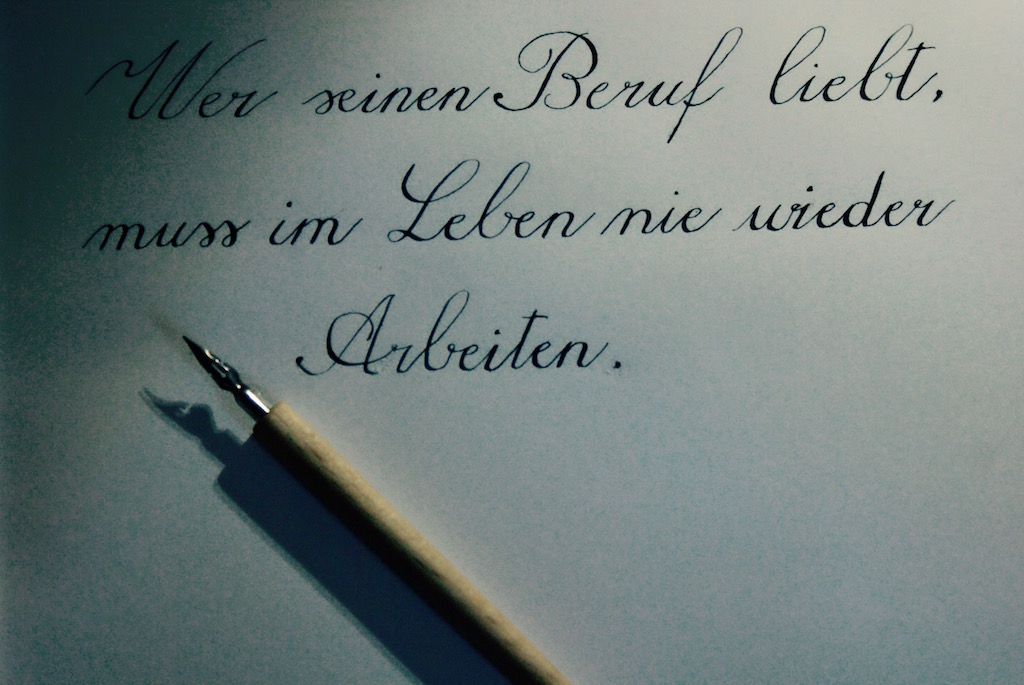 Wer seinen Beruf liebt,
muss im Leben nie wieder
Arbeiten.